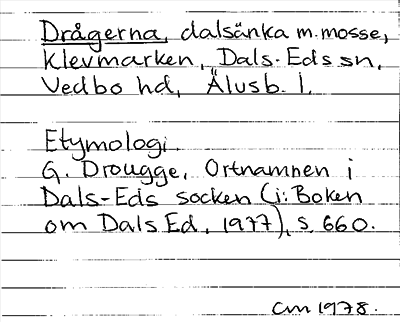 Drågerna, dalsänka m. mosse,
Klevmarken, Dals-Eds sn,
Vedbo hd, Älvsb. l.
Etymologi.
G. Drougge, Ortnamnen i
Dals-Eds socken (i: Boken
om Dals Ed, 1977), s. 660.
CM 1978.